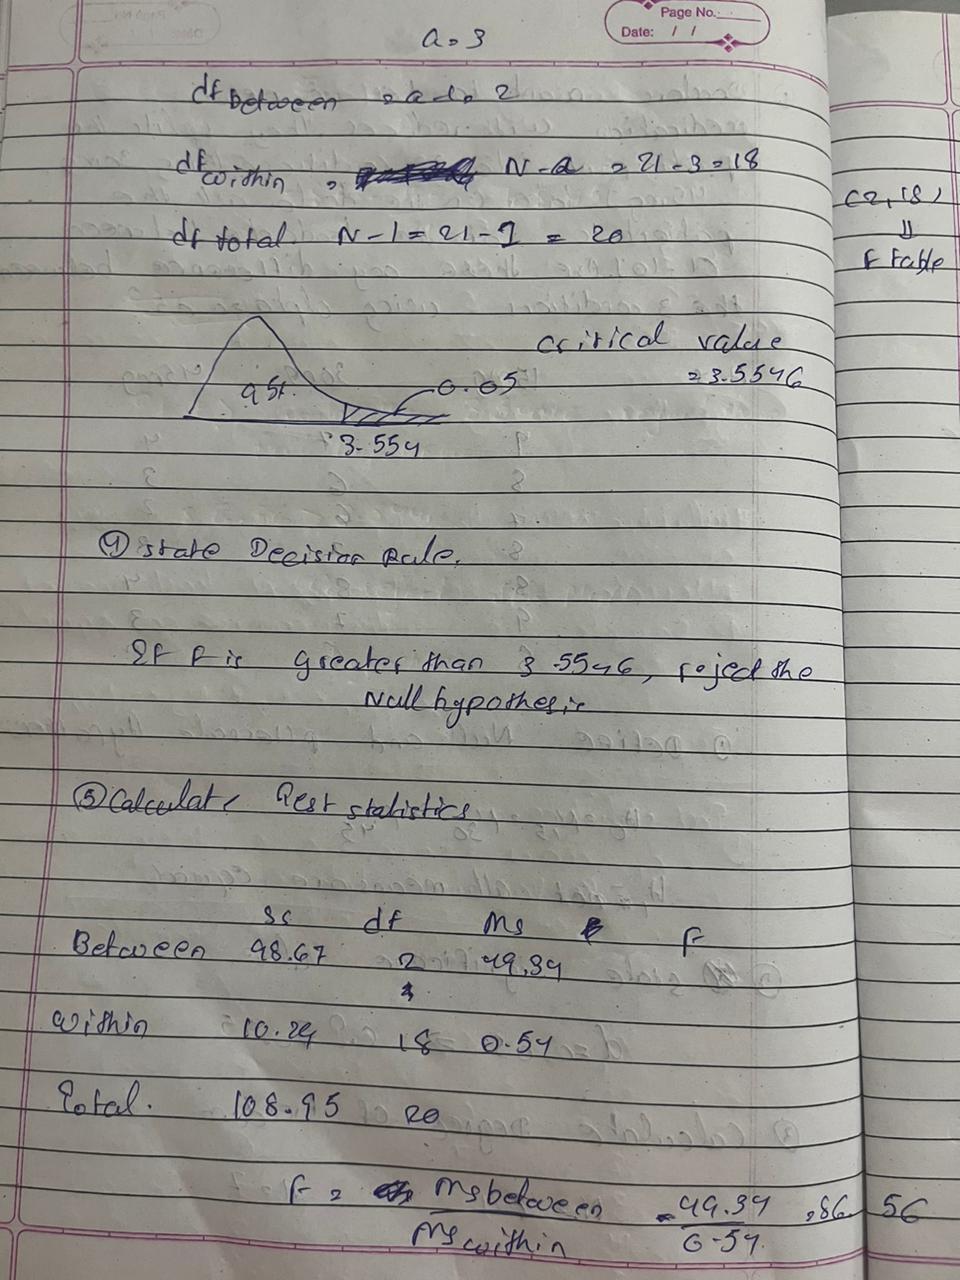 Page No.
Date: / /
a = 3
df Between = a-1 = 2
df within = N-a = 21-3 = 18
df total. N-1 = 21-1 = 20
(2,18)
⇓
F table
critical value
= 3.5546
95%.
0.05
3.554
④ state Decision Rule.
If F is greater than 3.5546, reject the
Null hypothesis
⑤ Calculate Test statistics
SS df MS F
Between 98.67 2 49.34
within 10.29 18 0.54
Total. 108.95 20
F = MS between / MS within = 49.34 / 0.54 = 86.56